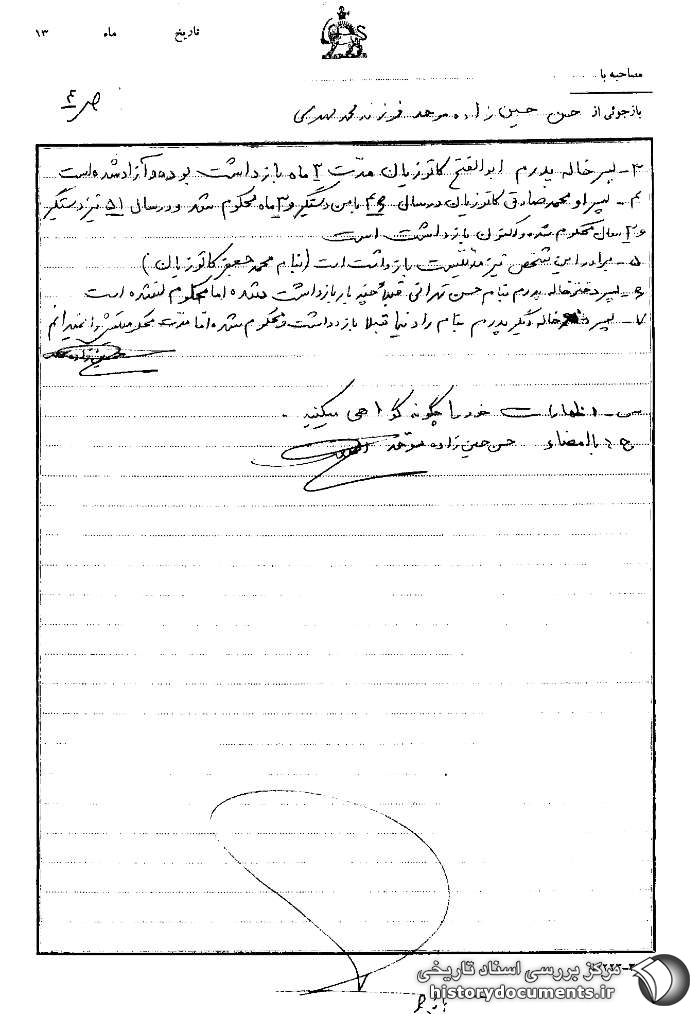 تاریخ ماه ۱۳
مصاحبه با
بازجوئی از حسن حسین زاده موحد فرزند محمد مهدی
ص ۴
۳- پسر خاله پدرم ابوالفتح کاتوزیان مدت ۲ ماه بازداشت بوده و آزاد شده است
۴- پسر او محمد صادق کاتوزیان در سال با من دستگیر و ۳ ماه محکوم شد و در سال ۵۱ نیز دستگیر
و ۲ سال محکوم شده و اکنون بازداشت است
۵- برادر این شخص نیز مدتیست بازداشت است (بنام محمد جعفر کاتوزیان)
۶- پسر دختر خاله پدرم بنام حسن تهرانی قبلاً چند بار بازداشت شده اما محکوم نشده است
۷- پسر خاله دیگر پدرم بنام راد نیا قبلا بازداشت و محکوم شده اما مدت محکومیتش را نمیدانم
حسین زاده موحد
س- اظهارات خود را چگونه گواهی میکنید.
ج: با امضاء حسن حسین زاده موحد
مرکز بررسی اسناد تاریخی
historydocuments.ir